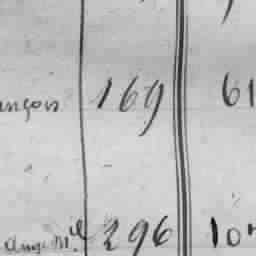 ançois 169 61
Ang. M.el 296 10